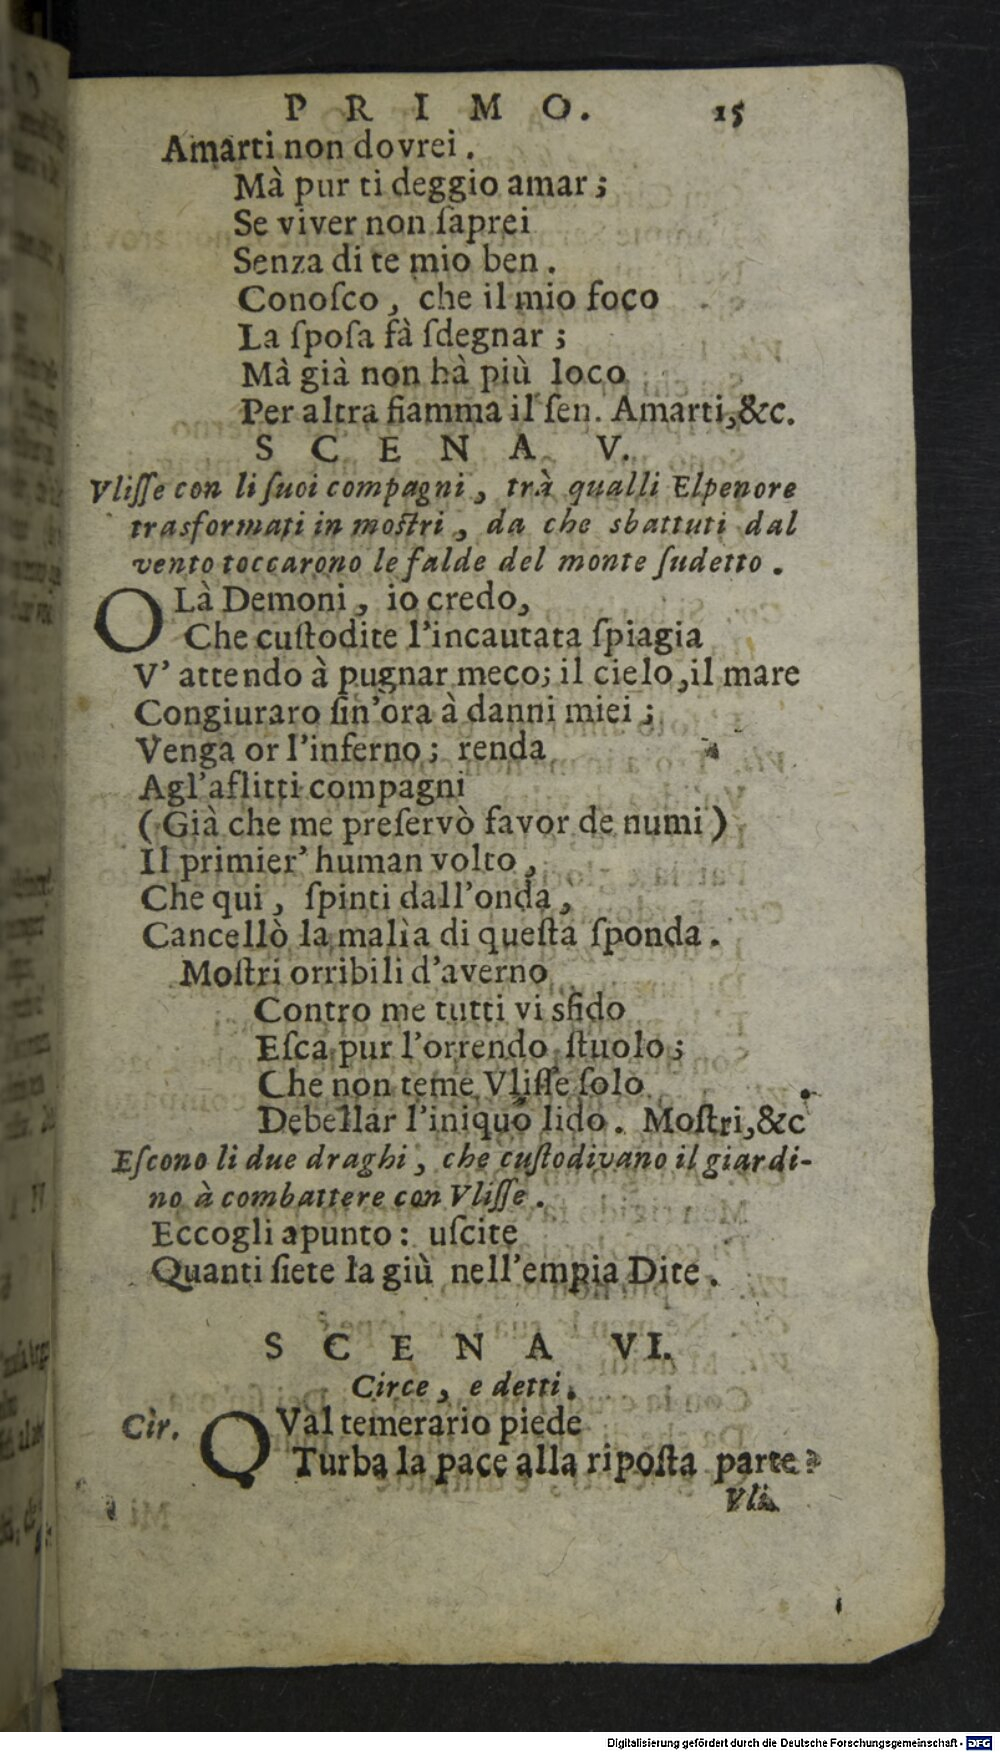 PRIMO. 15
Amarti non dovrei.
Mà pur ti deggio amar;
Se viver non ſaprei
Senza di te mio ben.
Conoſco, che il mio foco
La ſpoſa fà ſdegnar;
Mà già non hà più loco
Per altra fiamma il ſen. Amarti,&c.
SCENA V.
Vliſſe con li ſuoi compagni, trà qualli Elpenore
trasformati in moſtri, da che sbattuti dal
vento toccarono le falde del monte ſudetto.
OLà Demoni, io credo,
Che cuſtodite l'incautata ſpiagia
V' attendo à pugnar meco; il cielo,il mare
Congiuraro ſin'ora à danni miei;
Venga or l'inferno; renda
Agl'aflitti compagni
(Già che me preſervò favor de numi)
Il primier' human volto,
Che qui, ſpinti dall'onda,
Cancellò la malìa di queſta ſponda.
Moſtri orribili d'averno
Contro me tutti vi sfido
Eſca pur l'orrendo ſtuolo;
Che non teme Vliſſe ſolo
Debellar l'iniquo lido. Moſtri,&c
Eſcono li due draghi, che cuſtodivano il giardi-
no à combattere con Vliſſe.
Eccogli apunto: uſcite
Quanti ſiete la giù nell'empia Dite.
SCENA VI.
Circe, e detti.
Cir. QVal temerario piede
Turba la pace alla ripoſta parte?
Vli.
Digitalisierung gefördert durch die Deutsche Forschungsgemeinschaft - DFG